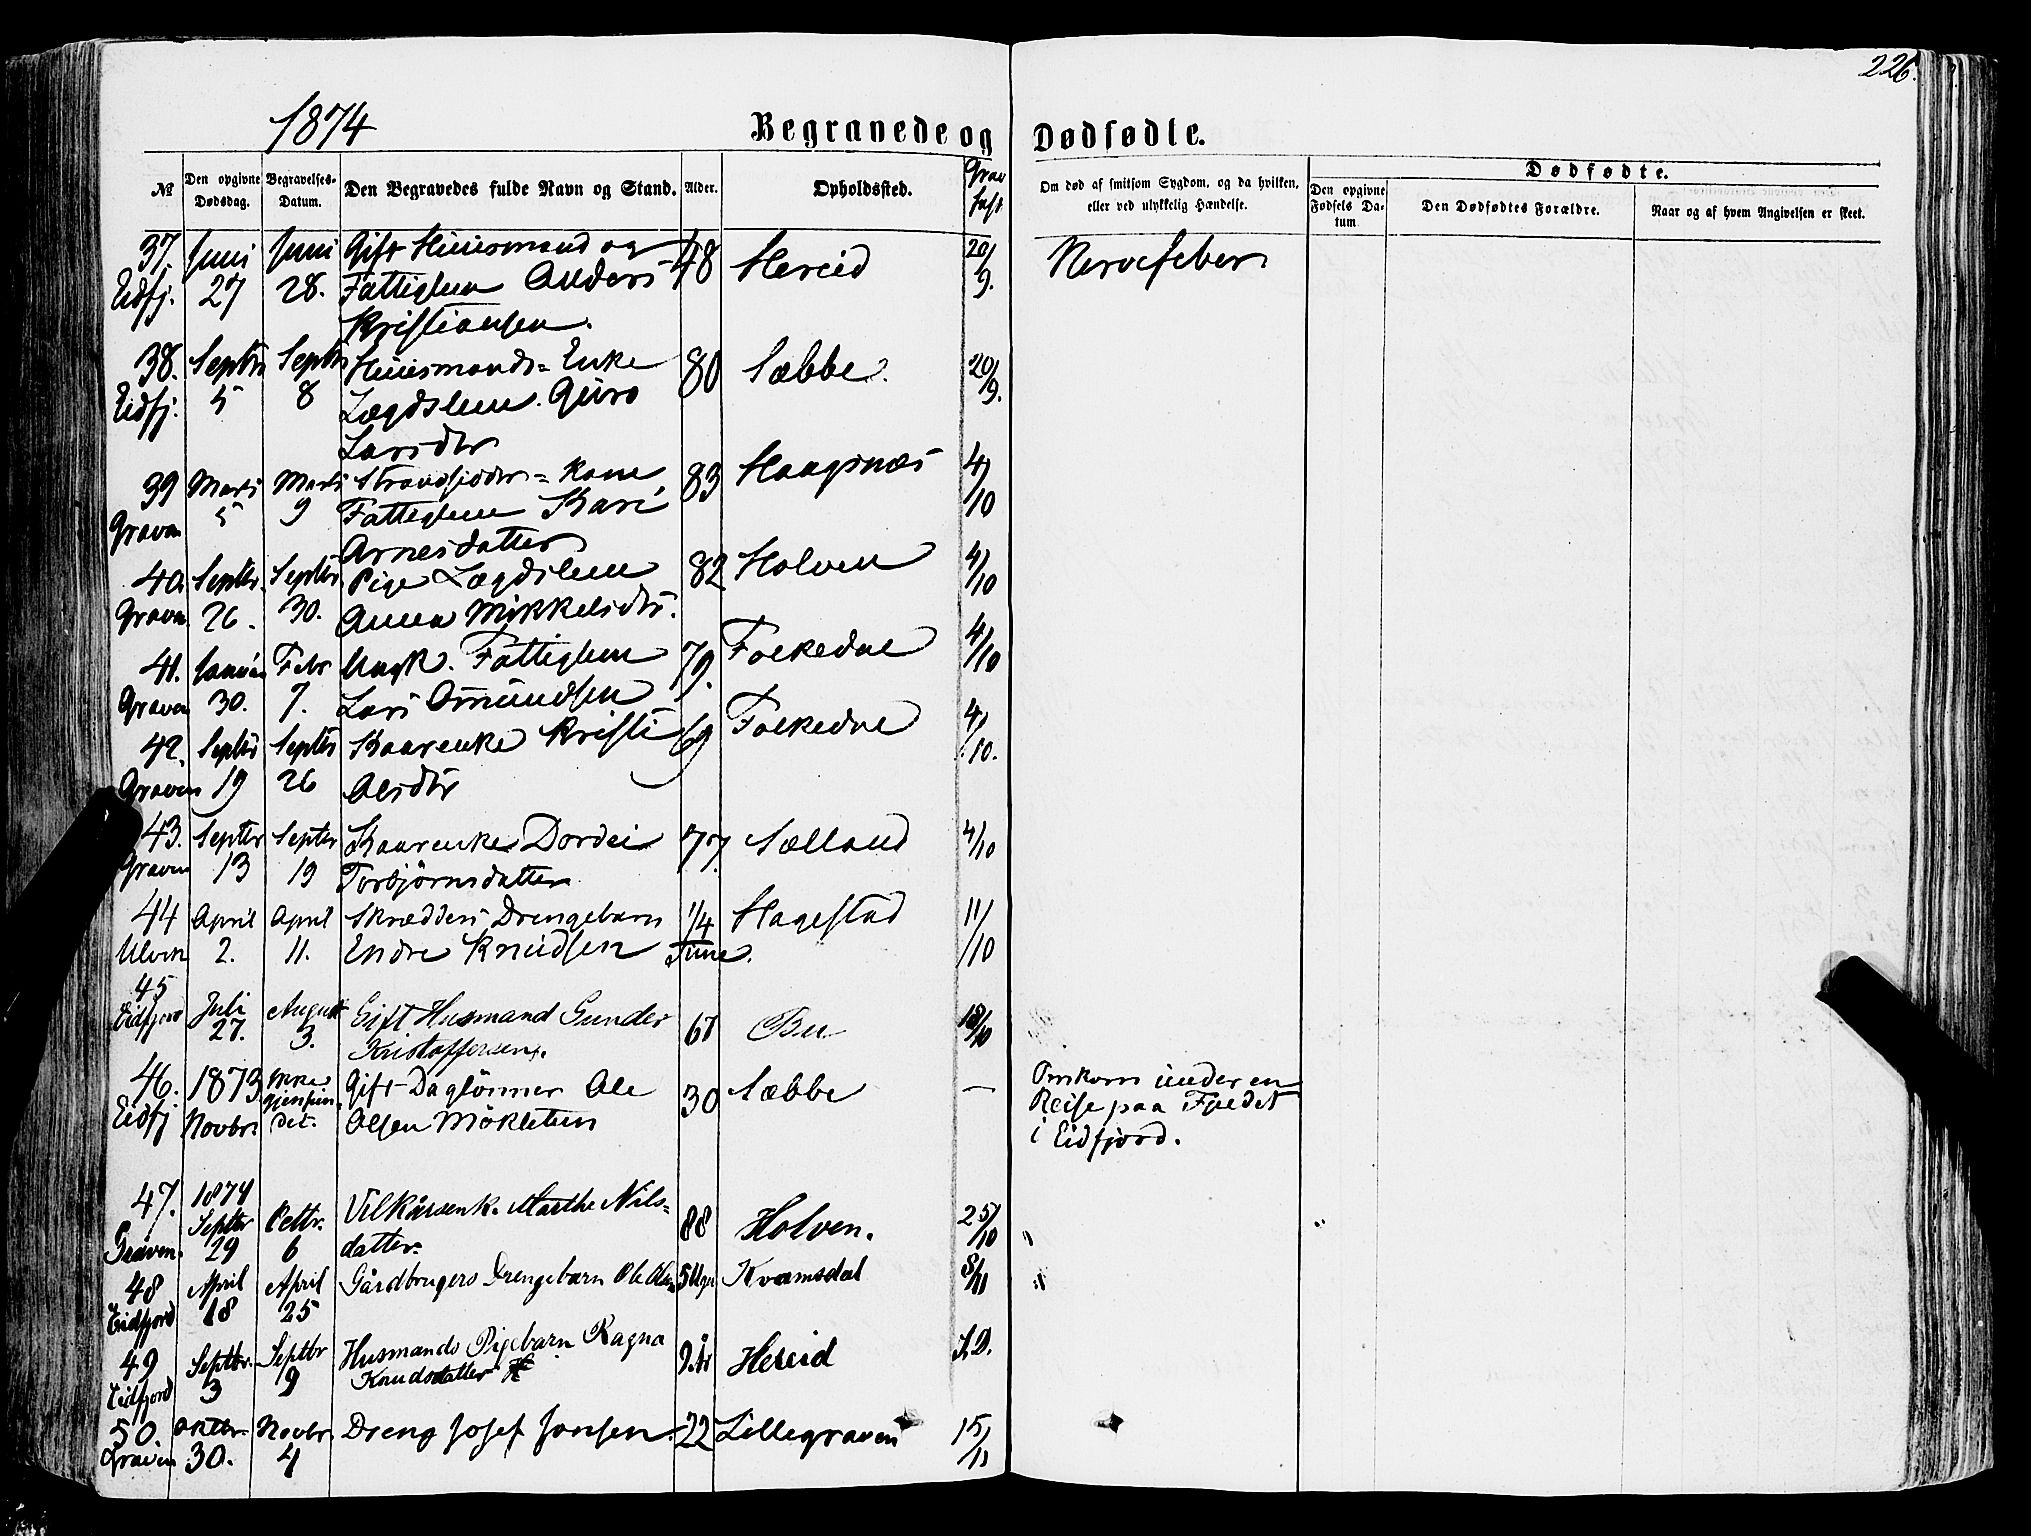 226.
1874
Begravede og Dødfødte.
№
Den opgivne Dødsdag.
Begravelses-Datum.
Den Begravedes fulde Navn og Stand.
Alder.
Opholdssted.
Om død af smitsom Sygdom, og da hvilken, eller ved ulykkelig Hændelse.
Dødfødte.
Den opgivne Fødsels Datum
Den Dødfødtes Forældre.
Naar og af hvem Angivelsen er skeet.
37. Juni Juni Gift Huusmand og 48 Hereid 20/9. Nervefeber
Eidfj. 27 28. Fattiglem Anders
Kristiansen.
38. Septbr Septbr Huusmands-Enke 80 Sæbbe. 20/9.
Eidfj. 5 8 Lægdslem. Guro
Larsdtr
39 Marts Marts Strandsidder-Kone 83 Haagsnæs 4/10
Graven 5 9 Fattiglem Kari
Arnesdatter
40. Septbr. Septbr Pige Lægdslem 82 Holven 4/10
Graven 26. 30. Anna Mikkelsdtr.
41. Januar Febr Ungk. Fattiglem 79. Folkedal 4/10
Graven 30. 7. Lars Omundsen
42. Septbr Septbr Kaarenke Kristi 69 Folkedal 4/10.
Graven 19 26 Olsdtr
43. Septbr Septbr Kaarenke Dordei 77 Sælland 4/10
Graven 13 19 Torbjørnsdatter
44 April April Skrædders Drengebarn 1/4 Hagestad 11/10
Ulvik 2. 11. Endre Knudsen Time.
45 Juli August Gift Husmand Gunder 67 Bu 18/10
Eidfjord 27. 3. Kristoffersen.
46. 1873 Ikke Gift Daglönner Ole 30 Sæbbe — Omkom under en
Eidfj Novbr. gjenfundet. Olsen Mökletun Reise paa Fjeldet
i Eidfjord.
47. 1874 Septbr Oktbr. Vilkårsenk. Marthe Nils- 88 Holven. 25/10 "
Graven. 29 6 datter.
48 April April Gårdbrugers Drengebarn Ole Olsen 5 Uger Kvamsdal 8/11 "
Eidfjord 18 25
49 Septbr. Septbr Husmands Pigebarn Ragna 9. År Hereid S.D.
Eidfjord 3 9 Knudsdatter
50. Oktbr. Novbr. Dreng Josef Jonsen. 22 Lillegraven 15/11
Graven 30. 4